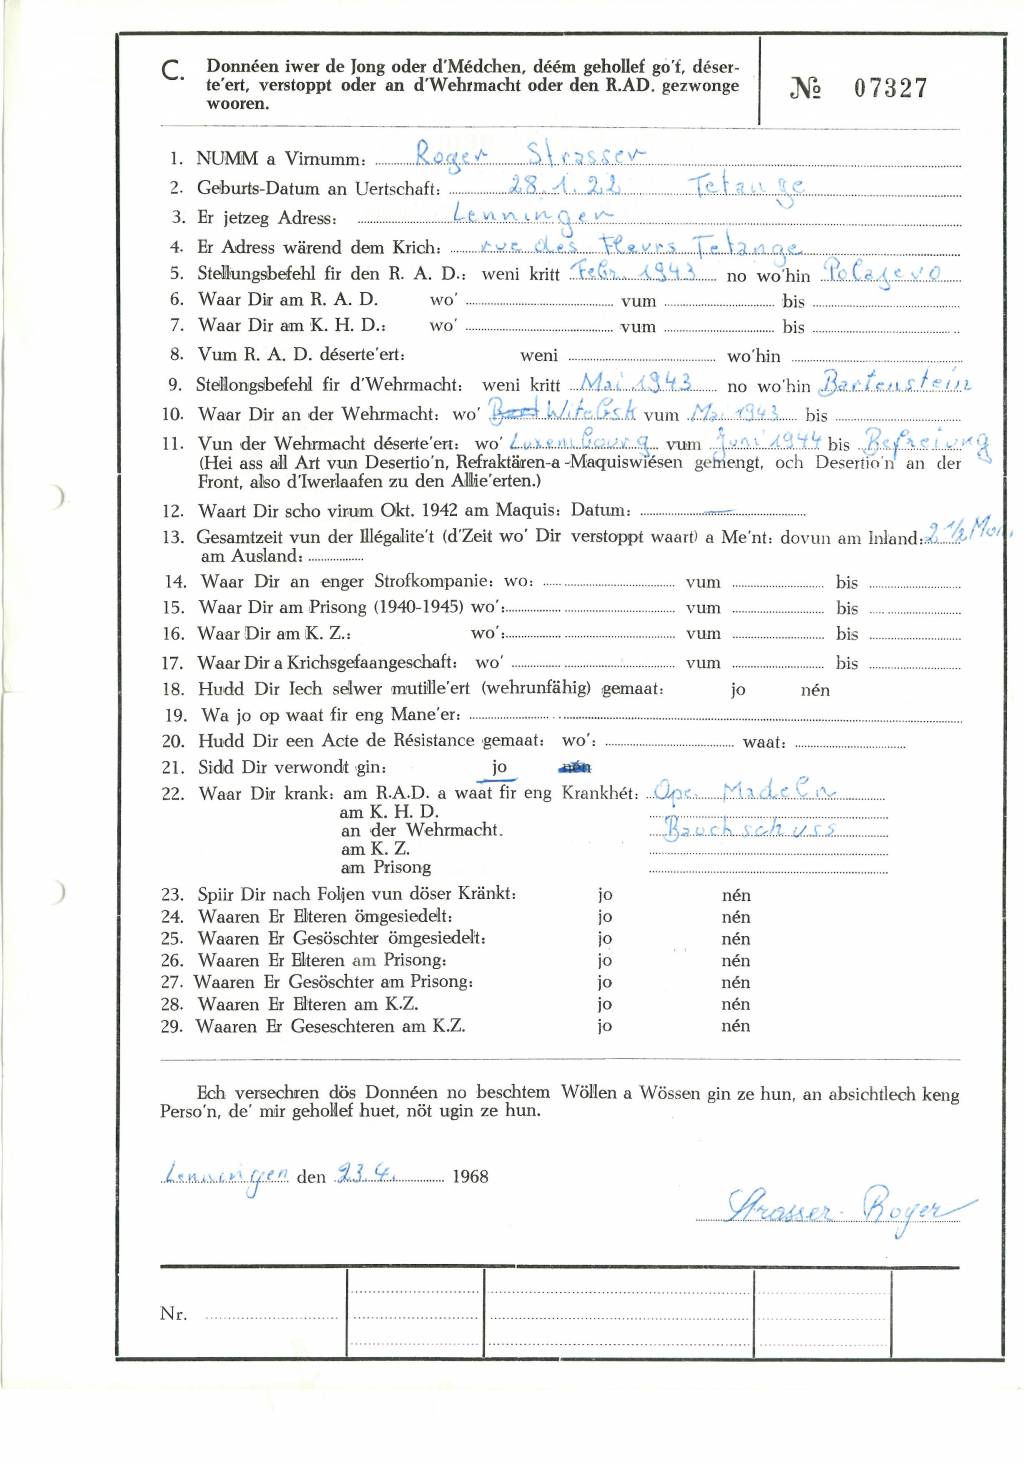 C. Donnéen iwer de Jong oder d'Médchen, déém gehollef go'f, déser-
te'ert, verstoppt oder an d'Wehrmacht oder den R.AD. gezwonge
wooren.
№ 07327
1. NUMM a Virnumm: Roger Strasser
2. Geburts-Datum an Uertschaft: 28.1.22 Tetange
3. Er jetzeg Adress: Lenningen
4. Er Adress wärend dem Krich: rue des Fleurs Tetange
5. Stellungsbefehl fir den R. A. D.: weni kritt Febr. 1943 no wo'hin Polajevo
6. Waar Dir am R. A. D. wo' vum bis
7. Waar Dir am K. H. D.: wo' vum bis
8. Vum R. A. D. déserte'ert: weni wo'hin
9. Stellongsbefehl fir d'Wehrmacht: weni kritt Mai 1943 no wo'hin Bartenstein
10. Waar Dir an der Wehrmacht: wo' Witebsk vum Mai 1943 bis
11. Vun der Wehrmacht déserte'ert: wo' Luxembourg vum Juni 1944 bis Befreiung
(Hei ass all Art vun Desertio'n, Refraktären-a -Maquiswiésen gemengt, och Desertio'n an der
Front, also d'Iwerlaafen zu den Allie'erten.)
12. Waart Dir scho virum Okt. 1942 am Maquis: Datum: —
13. Gesamtzeit vun der Illégalite't (d'Zeit wo' Dir verstoppt waart) a Me'nt: dovun am Inland: 2 1/2 Mon.
am Ausland:
14. Waar Dir an enger Strofkompanie: wo: vum bis
15. Waar Dir am Prisong (1940-1945) wo': vum bis
16. Waar Dir am K. Z.: wo': vum bis
17. Waar Dir a Krichsgefaangeschaft: wo' vum bis
18. Hudd Dir Iech selwer mutille'ert (wehrunfähig) gemaat: jo nén
19. Wa jo op waat fir eng Mane'er:
20. Hudd Dir een Acte de Résistance gemaat: wo': waat:
21. Sidd Dir verwondt gin: jo nén
22. Waar Dir krank: am R.A.D. a waat fir eng Krankhét: Ope. Madeln
am K. H. D.
an der Wehrmacht. Bauchschuss
am K. Z.
am Prisong
23. Spiir Dir nach Foljen vun döser Kränkt: jo nén
24. Waaren Er Elteren ömgesiedelt: jo nén
25. Waaren Er Gesöschter ömgesiedelt: jo nén
26. Waaren Er Elteren am Prisong: jo nén
27. Waaren Er Gesöschter am Prisong: jo nén
28. Waaren Er Elteren am K.Z. jo nén
29. Waaren Er Geseschteren am K.Z. jo nén
Ech versechren dös Donnéen no beschtem Wöllen a Wössen gin ze hun, an absichtlech keng
Perso'n, de' mir gehollef huet, nöt ugin ze hun.
Lenningen den 23.4. 1968
Strasser Roger
Nr.